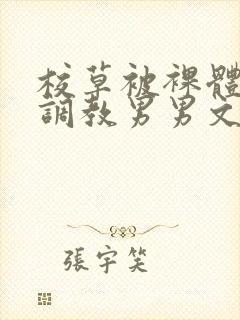 校草被裸體
調教男男文
張宇笑